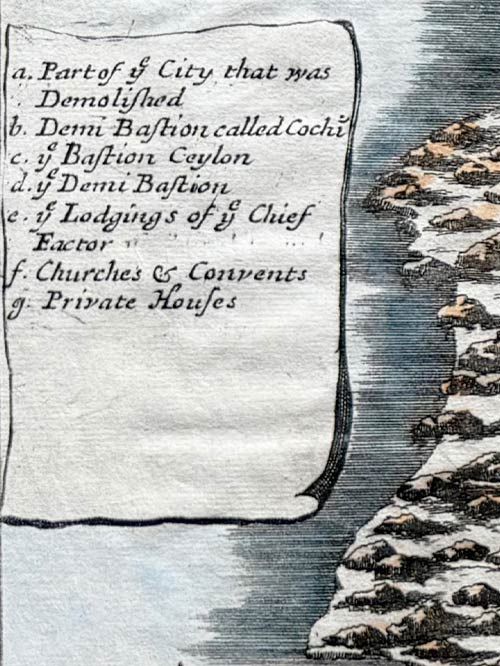 a. Part of yͤ City that was
Demoliſhed
b. Demi Baſtion called Cochi
c. yͤ Baſtion Ceylon
d. yͤ Demi Baſtion
e. yͤ Lodgings of yͤ Chief
Factor
f. Churches & Convents
g. Private Houſes